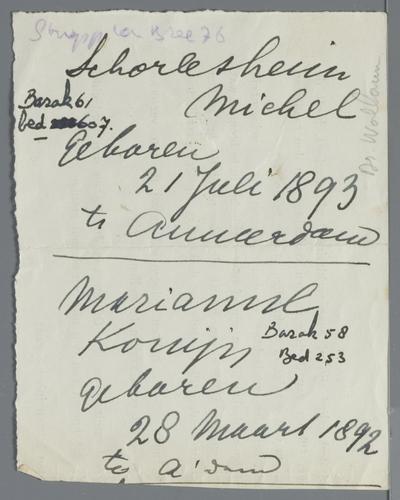 v Bree 76
Schorlesheim
Michel
Barak 61
bed 607.
Geboren
21 Juli 1893
te Amsterdam
Dr. Wolbaum
Marianne
Konijn
Barak 58
Bed 253
geboren
28 Maart 1892
te A'dam